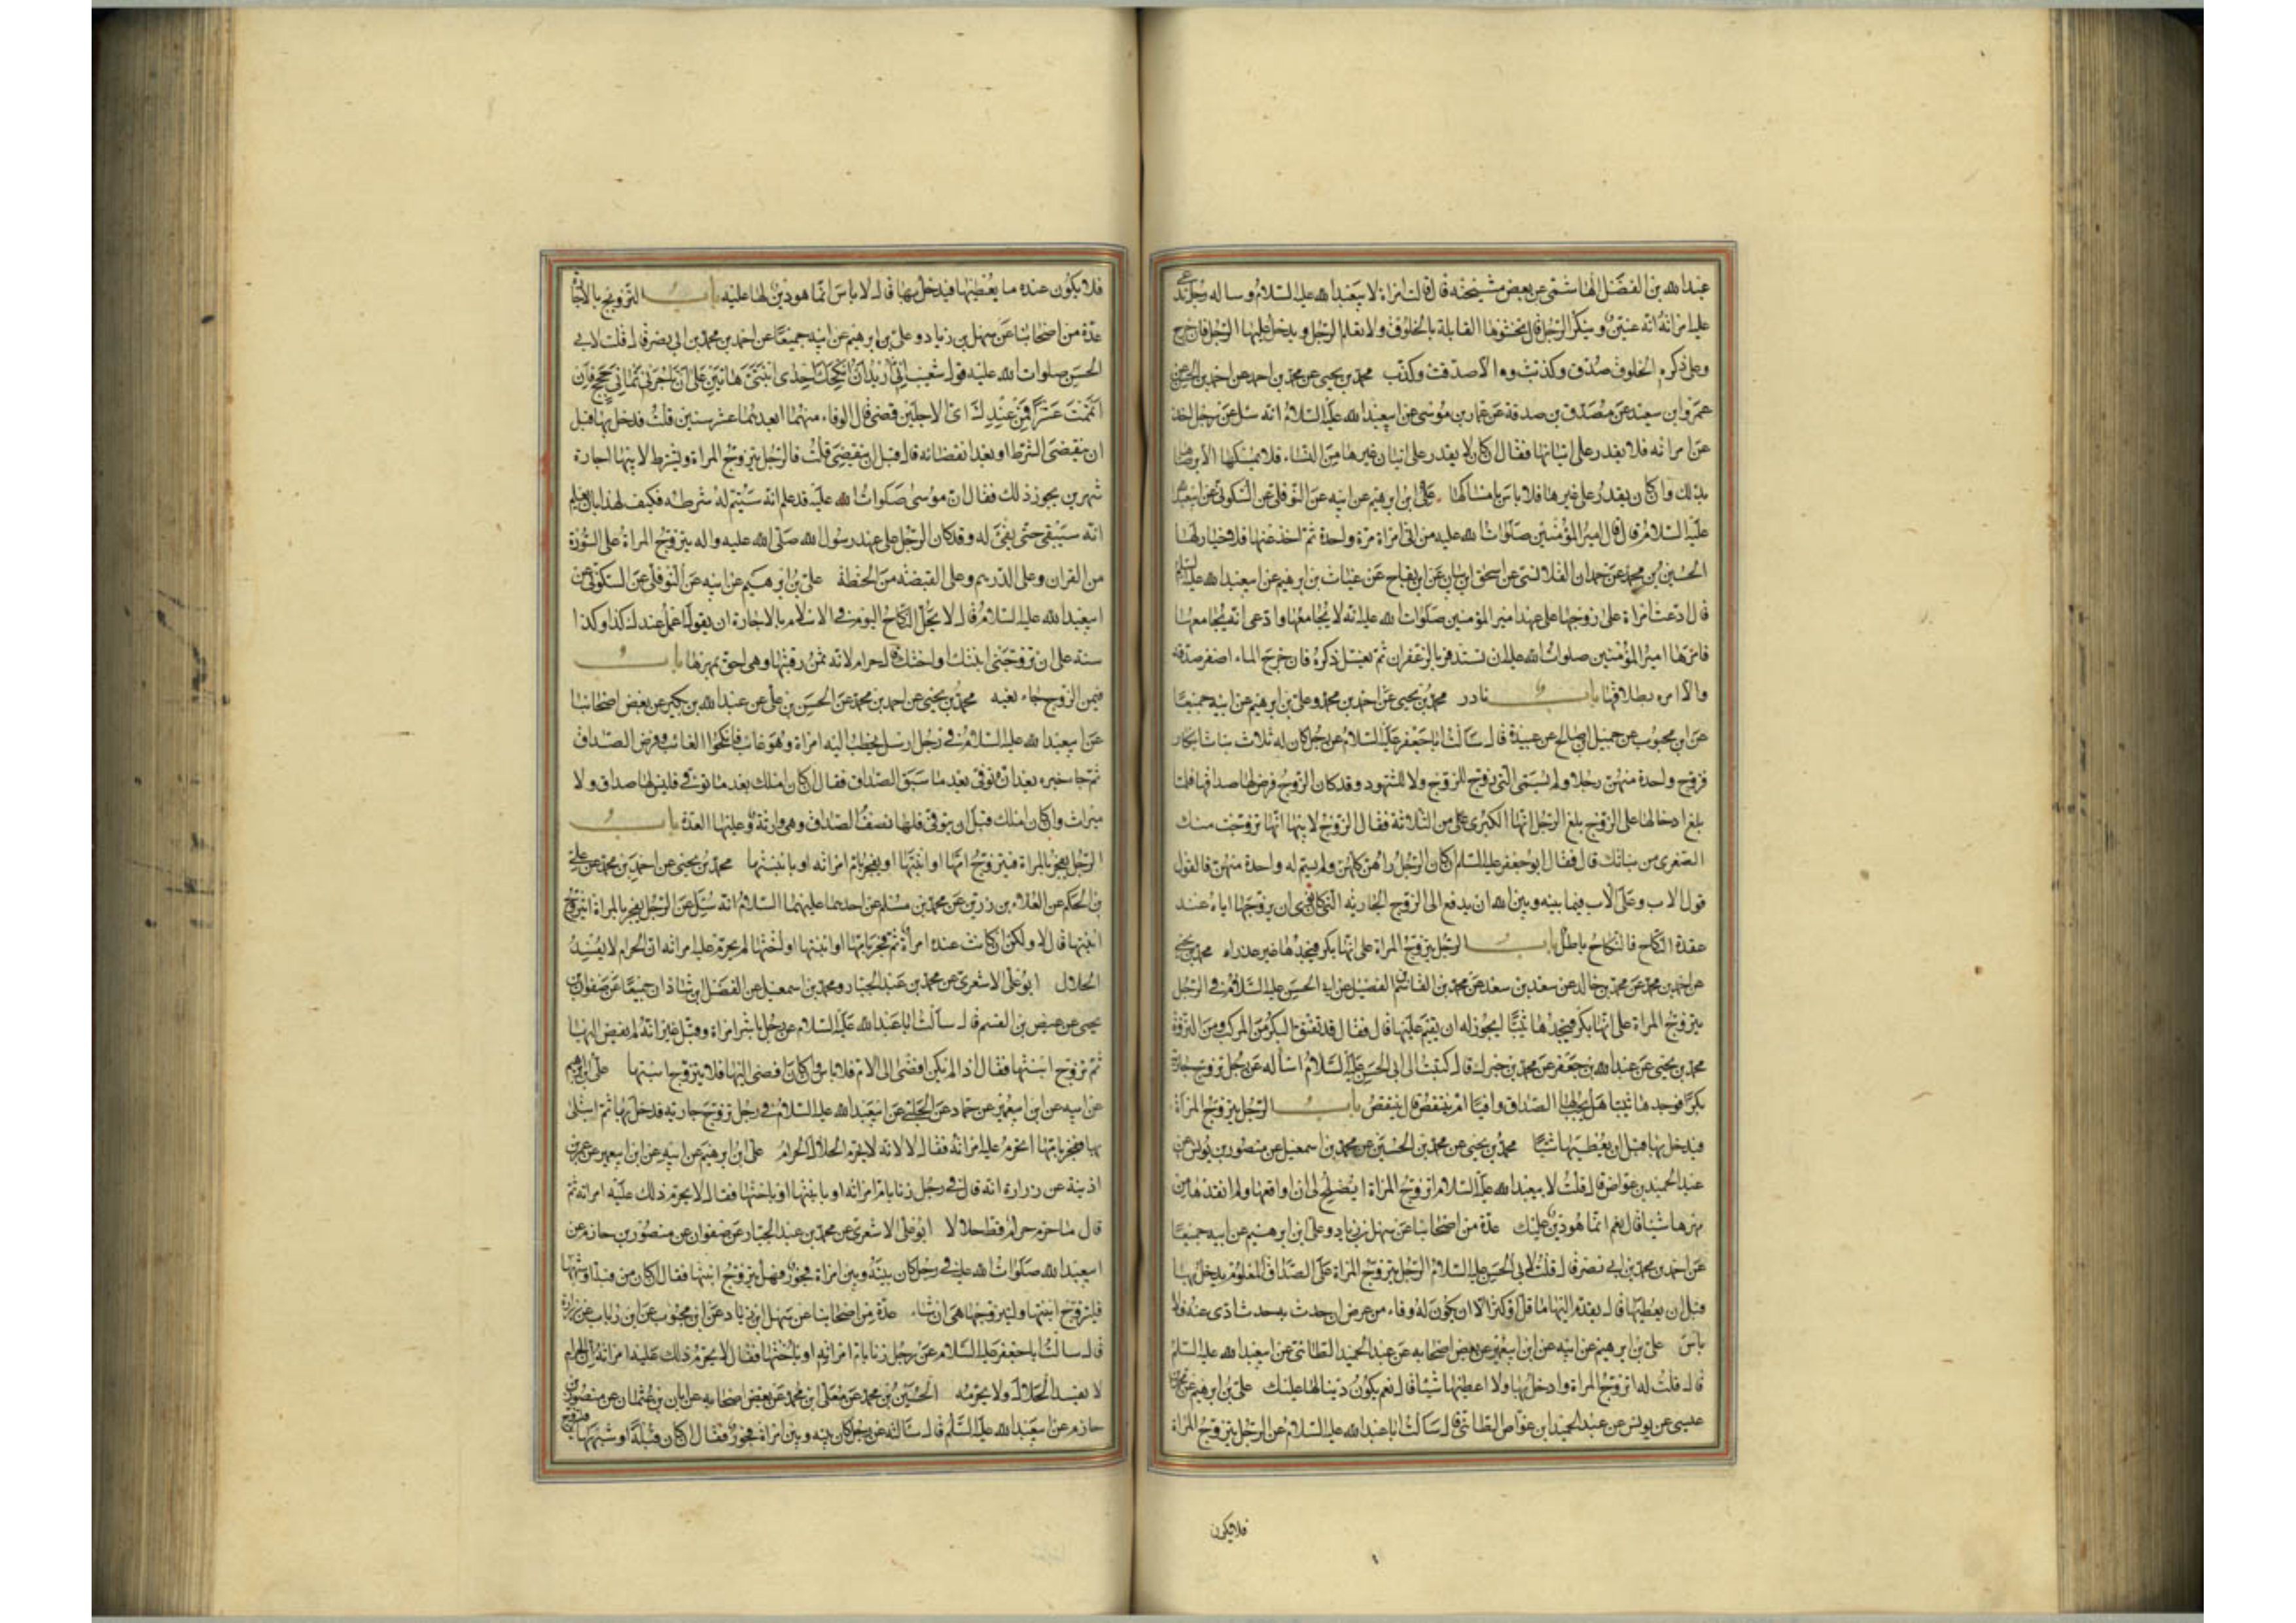 عبدالله بن الفضل الهاشمى عن بعض مشيخته قال قالت امراة لابيعبدالله عليه السلام وساله رجل تدعى
عليه امراته انه عنين وينكر الرجل قال تحشوها القابلة بالخلوق ولا يعلم الرجل ويدخل عليها الرجل فان خرج
وعلى ذكره الخلوق صدق وكذبت والا صدقت وكذب محمد بن يحيى عن محمد بن احمد عن احمد بن الحسن عن
عمرو ابن سعيد عن مصدق بن صدقة عن عمار بن موسى عن ابيعبدالله عليه السلام انه سئل عن رجل اخذ
عن امراته فلا يقدر على اتيانها فقال ان كان لا يقدر على اتيان غيرها من النساء فلا يمسكها الا برضاها
بذلك وان كان يقدر على غيرها فلا باس بامساكها على ابن ابرهيم عن ابيه عن النوفلى عن السكونى عن ابيعبدالله
عليه السلام قال قال امير المؤمنين صلوات الله عليه من اتى امراة مرة واحدة ثم اخذ عنها فلا خيار لها
الحسين بن محمد عن حمدان القلانسى عن اسحق ابن بنان عن ابن بقاح عن غياث بن ابرهيم عن ابيعبدالله عليه السلم
قال ادعت امراة على زوجها على عهد امير المؤمنين صلوات الله عليه انه لا يجامعها وادعى انه يجامعها
فامرها امير المؤمنين صلوات الله عليه ان تستذفر بالزعفران ثم يغسل ذكره فان خرج الماء اصفر صدقه
والا امره بطلاقها باب نادر محمد بن يحيى عن احمد بن محمد وعلى بن ابرهيم عن ابيه جميعا
عن ابن محبوب عن جميل بن صالح عن عبيدة قال سالت اباجعفر عليه السلام عن رجل كان له ثلاث بنات ابكار
فزوج واحدة منهن رجلا ولم يسمى التى زوج للزوج ولا للشهود وقد كان الزوج فرض لها صداقها فلما
بلغ ادخالها على الزوج بلغ الرجل انها الكبرى من الثلاثة فقال الزوج لابيها انما تزوجت منك
الصغرى من بناتك قال فقال ابوجعفر عليه السلم ان كان الرجل راهن كلهن ولم يسم له واحدة منهن فالقول
قول الاب وعلى الاب فيما بينه وبين الله ان يدفع الى الزوج الجارية التى كان نوى ان يزوجها اياه عند
عقدة النكاح فالنكاح باطل باب الرجل يتزوج المراة على انها بكر فيجدها غير عذراء محمد بن يحيى
عن احمد بن محمد عن محمد بن خالد عن سعد بن سعد عن محمد بن القاسم الفضيل عن ابى الحسن عليه السلام فى الرجل
يتزوج المراة على انها بكر فيجدها ثيبا ايجوز له ان يقيم عليها قال فقال قد تفتق البكر من المركب ومن النزوة
محمد بن يحيى عن عبدالله بن جعفر عن محمد بن جزك قال كتبت الى ابى الحسن عليه السلام اساله عن رجل تزوج جارية
بكرا فوجدها ثيبا هل يجب لها الصداق وافيا ام ينتقص قال ينتقص باب الرجل يتزوج المراة
فيدخل بها قبل ان يعطيها شيئا محمد بن يحيى عن محمد بن الحسين عن محمد بن اسمعيل عن منصور بن يونس عن
عبدالحميد بن عواض قال قلت لابيعبدالله عليه السلام اتزوج المراة ايصلح لى ان اواقعها ولم انقدها من
مهرها شيئا قال نعم انما هو دين عليك عدة من اصحابنا عن سهل بن زياد وعلى ابن ابرهيم عن ابيه جميعا
عن احمد بن محمد بن ابى نصر قال قلت لابى الحسن عليه السلام الرجل يتزوج المراة على الصداق المعلوم يدخل بها
قبل ان يعطيها قال يقدم اليها ما قل او كثر الا ان يكون له وفاء من عرض ان حدث به حدث ادى عنه فلا
باس على بن ابرهيم عن ابيه عن ابن ابيعمير عن بعض اصحابه عن عبدالحميد الطائى عن ابيعبدالله عليه السلم
قال قلت له اتزوج المراة وادخل بها ولا اعطيها شيئا قال نعم يكون دينا لها عليك على بن ابرهيم عن محمد بن
عيسى عن يونس عن عبدالحميد ابن عواض الطائى قال سالت اباعبدالله عليه السلام عن الرجل يتزوج المراة
فلايكون
فلا يكون عنده ما يعطيها فيدخل بها قال لا باس انما هو دين لها عليه باب التزويج بالاجارة
عدة من اصحابنا عن سهل بن زياد وعلى بن ابرهيم عن ابيه جميعا عن احمد بن محمد بن ابى نصر قال قلت لابى
الحسن صلوات الله عليه قول شعيب انى اريد ان انكحك احدى ابنتى هاتين على ان تاجرنى ثمانى حجج فان
اتممت عشرا فمن عندك اى الاجلين قضى قال الوفاء منهما ابعدهما عشر سنين قلت فدخل بها قبل
ان ينقضى الشرط او بعد انقضائه قال قبل ان ينقضى قلت فالرجل يتزوج المراة ويشترط لابيها اجارة
شهرين يجوز ذلك فقال ان موسى صلوات الله عليه قد علم انه سيتم له شرطه فكيف لهذا بان يعلم
انه سيبقى حتى يفى له وقد كان الرجل على عهد رسول الله صلى الله عليه واله يتزوج المراة على السورة
من القران وعلى الدرهم وعلى القبضة من الحنطة على بن ابرهيم عن ابيه عن النوفلى عن السكونى عن
ابيعبدالله عليه السلام قال لا يحل النكاح اليوم فى الاسلام بالاجارة ان يقول اعمل عندك كذا وكذا
سنة على ان تزوجنى ابنتك او اختك قال حرام لانه ثمن رقبتها وهى احق بمهرها باب
فيمن الزوج جاء نعيه محمد بن يحيى عن احمد بن محمد عن الحسن بن على عن عبدالله بن بكير عن بعض اصحابنا
عن ابيعبدالله عليه السلام فى رجل ارسل يخطب اليه امراة وهو غائب فانكحوا الغائب وفرض الصداق
ثم جاء خبره بعد انه توفى بعد ما سبق الصداق فقال ان كان املك بعد ما توفى فليس لها صداق ولا
ميراث وان كان املك قبل ان يتوفى فلها نصف الصداق وهى وارثة وعليها العدة باب
الرجل يفجر بالمراة فيتزوج امها او ابنتها او يفجر بام امراته او بابنتها محمد بن يحيى عن احمد بن محمد عن على
بن الحكم عن العلاء بن رزين عن محمد بن مسلم عن احدهما عليهما السلام انه سئل عن الرجل يفجر بالمراة ايتزوج
ابنتها قال لا ولكن ان كانت عنده امراة ثم فجر بامها او ابنتها او اختها لم يحرم عليه امراته ان الحرام لا يفسد
الحلال ابوعلى الاشعرى عن محمد بن عبدالجبار ومحمد بن اسمعيل عن الفضل ابن شاذان جميعا عن صفوان بن
يحيى عن عيص بن القسم قال سالت اباعبدالله عليه السلام عن رجل باشر امراة وقبل غير انه لم يفض اليها
ثم تزوج ابنتها فقال اذا لم يكن افضى الى الام فلا باس وان كان افضى اليها فلا يتزوج ابنتها على ابن ابرهيم
عن ابيه عن ابن ابيعمير عن حماد عن الحلبى عن ابيعبدالله عليه السلام فى رجل تزوج جارية فدخل بها ثم ابتلى
بها ففجر بامها اتحرم عليه امراته فقال لا لانه لا يحرم الحلال الحرام على ابن ابرهيم عن ابيه عن ابن ابيعمير عن عمر بن
اذينة عن زرارة انه قال فى رجل زنا بام امراته او بابنتها او باختها فقال لا يحرم ذلك عليه امراته ثم
قال ما حرم حرام قط حلالا ابوعلى الاشعرى عن محمد بن عبدالجبار عن صفوان عن منصور بن حازم عن
ابيعبدالله صلوات الله عليه فى رجل كان بينه وبين امراة فجور فهل يتزوج ابنتها فقال ان كان من قبلة او شبهها
فليتزوج ابنتها وليتزوجها هى ان شاء عدة من اصحابنا عن سهل ابن زياد عن ابن محبوب عن ابن رئاب عن زرارة
قال سالت اباجعفر عليه السلام عن رجل زنا بام امراته او باختها فقال لا يحرم ذلك عليه امراته ان الحرام
لا يفسد الحلال ولا يحرمه الحسين بن محمد عن معلى ابن محمد عن بعض اصحابه عن ابان بن عثمان عن منصور بن
حازم عن ابيعبدالله عليه السلم قال سالته عن رجل كان بينه وبين امراة فجور فقال ان كان قبلة او شبهها فليتزوج